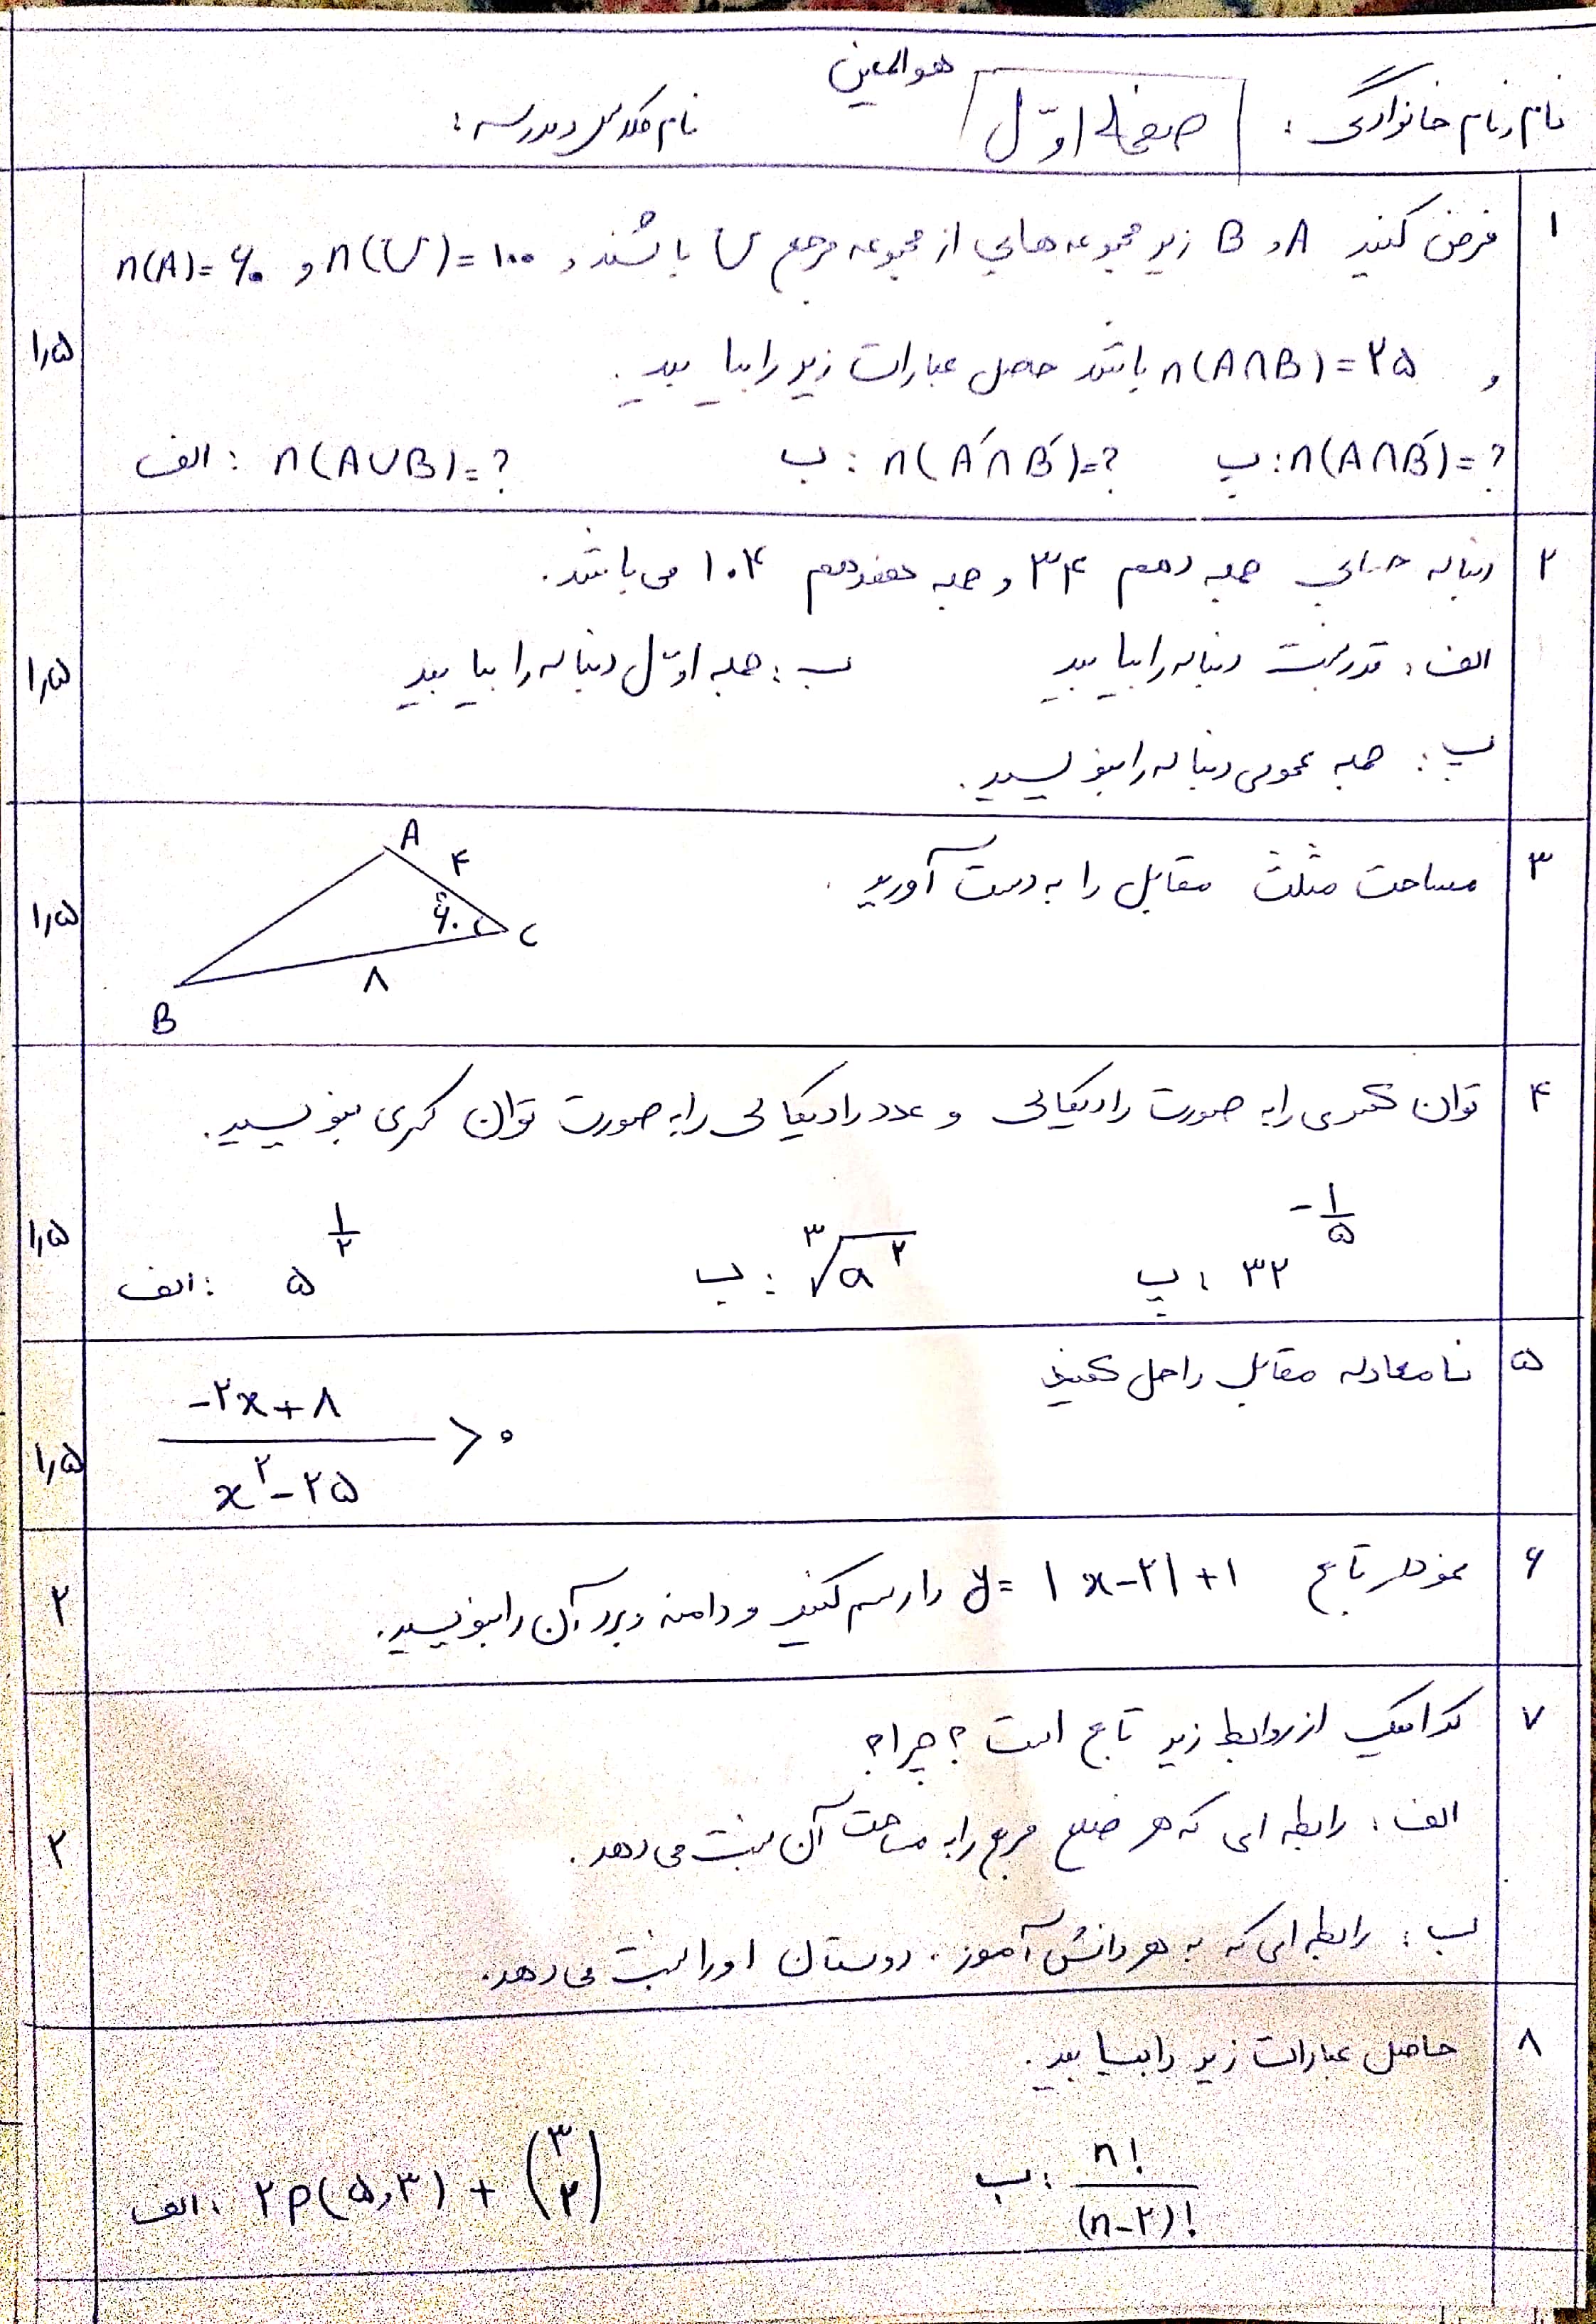 هوالمعین
نام و نام خانوادگی : صفحه اوّل نام کلاس و مدرسه :
۱ فرض کنید A و B زیر مجموعه هایی از مجموعه مرجع U باشند و n(U)=۱۰۰ و n(A)=۶۰
۱٫۵
و n(A∩B)=۲۵ باشد حاصل عبارات زیر را بیابید.
الف : n(A∪B)=? ب : n(A′∩B′)=? پ : n(A∩B′)=?
۲ دنباله حسابی جمله دهم ۳۴ و جمله هفدهم ۱۰۴ می باشد.
۱٫۵
الف : قدرنسبت دنباله را بیابید ب : جمله اوّل دنباله را بیابید
پ : جمله عمومی دنباله را بنویسید.
۳ مساحت مثلث مقابل را به دست آورید.
۱٫۵
A
۴
۶۰°
C
۸
B
۴ توان کسری را به صورت رادیکالی و عدد رادیکالی را به صورت توان کسری بنویسید.
۱٫۵
الف : ۵^(۱/۲) ب : ∛a^۲ پ : ۳۲^(-۱/۵)
۵ نامعادله مقابل را حل کنید
۱٫۵
(-۲x+۸)/(x^۲-۲۵) > ۰
۶ نمودار تابع y=|x-۲|+۱ را رسم کنید و دامنه و برد آن را بنویسید.
۲
۷ کدامیک از روابط زیر تابع است؟ چرا؟
۲
الف : رابطه ای که هر ضلع مربع را به مساحت آن نسبت می دهد.
ب : رابطه ای که به هر دانش آموز، دوستان او را نسبت می دهد.
۸ حاصل عبارات زیر را بیابید.
الف : ۲P(۵,۳) + (۳ ۲) ب : n!/(n-۲)!